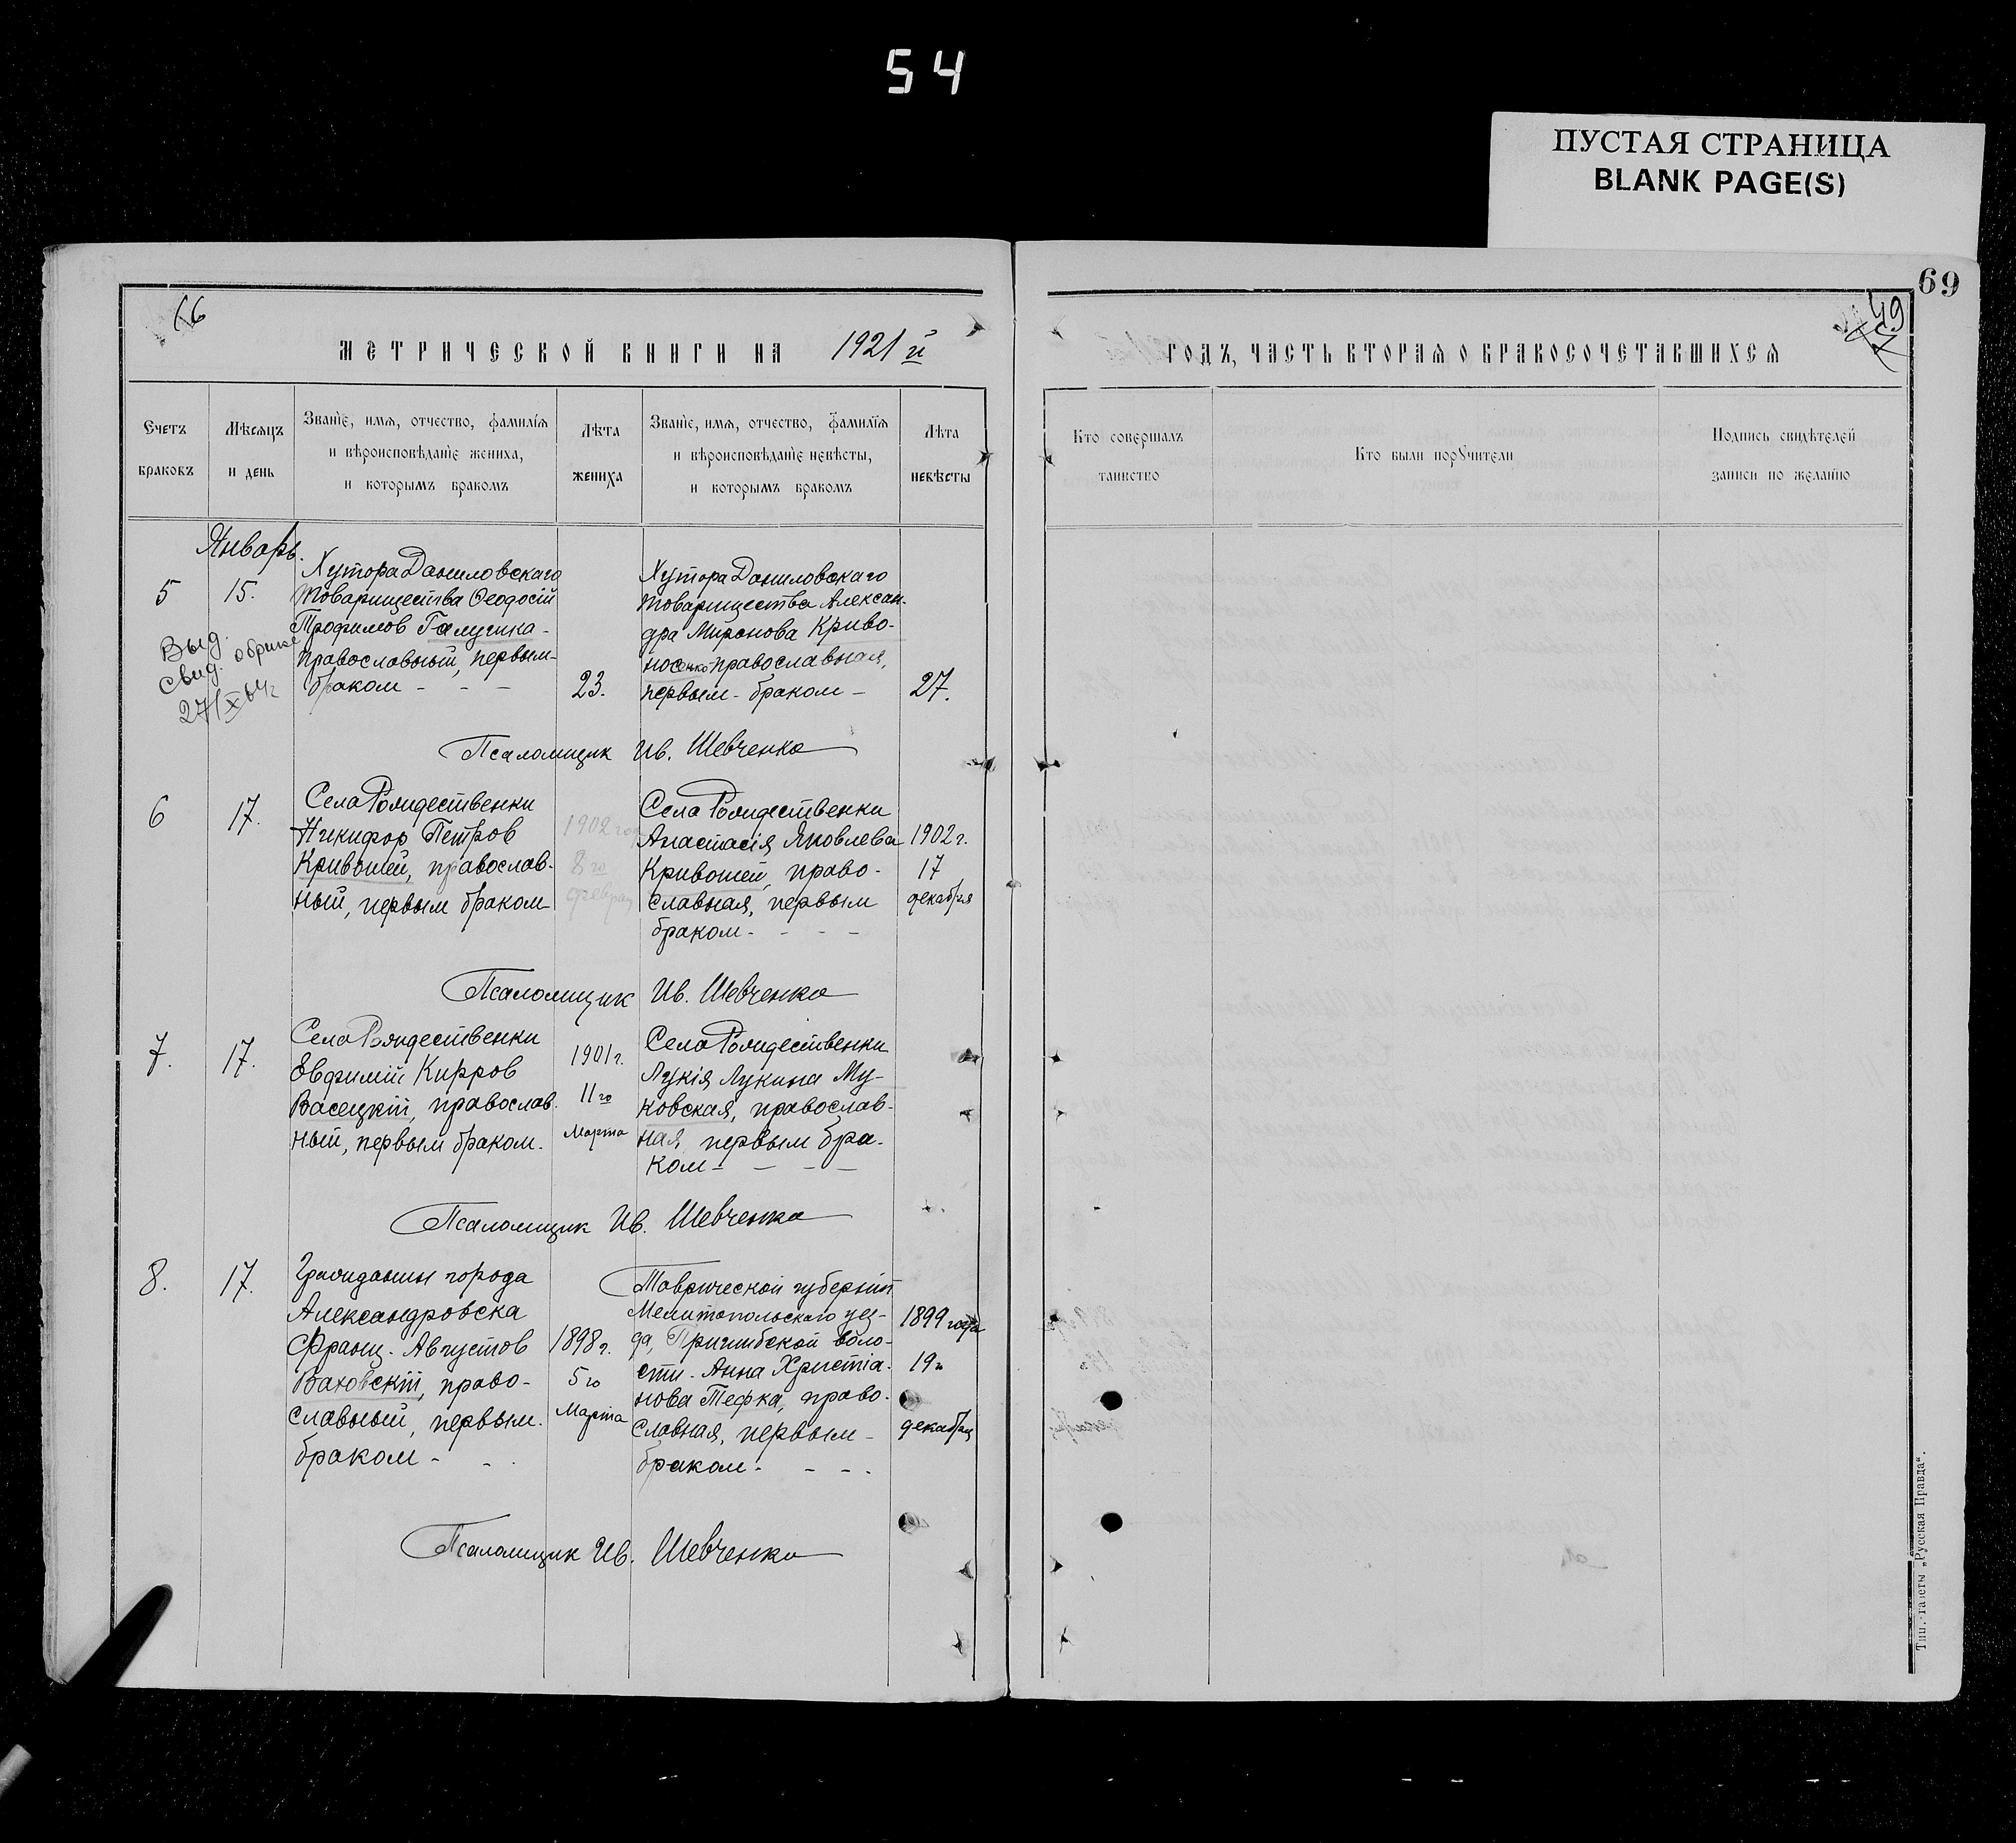 54
ПУСТАЯ СТРАНИЦА
BLANK PAGE(S)
69
66
49
МЕТРИЧЕСКОЙ КНИГИ НА 1921 й
ГОДЪ, ЧАСТЬ ВТОРАЯ О БРАКОСОЧЕТАВШИХСЯ
Счетъ
браковъ
Мѣсяцъ
и день
Званіе, имя, отчество, фамилія
и вѣроисповѣданіе жениха,
и которымъ бракомъ
Лѣта
жениха
Званіе, имя, отчество, фамилія
и вѣроисповѣданіе невѣсты,
и которымъ бракомъ
Лѣта
невѣсты
Кто совершалъ
таинство
Кто были поручители
Подпись свидѣтелей
записи по желанію
Январь.
5
15.
Хутора Даниловскаго
товарищества Ѳеодосій
Трофимов Галушка-
православный, первым-
браком - - -
23.
Хутора Даниловскаго
товарищества Алексан-
дра Миронова Криво-
носенко православная,
первым - браком -
27.
Выд.
свид. о браке
27/X 64г
Псаломщик Ив. Шевченко
6
17.
Села Рождественки
Никифор Петров
Кривошей, православ-
ный, первым браком
1902 год
8 го
феврал
Села Рождественки
Анастасія Яковлева
Кривошей, право-
славная, первым
браком - - - -
1902 г.
17
декабря
Псаломщик Ив. Шевченко
7.
17.
Села Рождественки
Евфимій Киррѡв
Васецкій, православ-
ный, первым браком.
1901 г.
11 го
Марта
Села Рождественки
Лукія Лукина Му-
ковская, православ-
ная, первым бра-
ком - - - -
Псаломщик Ив. Шевченко
8.
17.
Гражданин города
Александровска
Франц. Августов
Ваховскій, право-
славный, первым.
браком - - .
1898 г.
5 го
Марта
Таврической губерніи
Мелитопольскаго уез-
да, Пришибской воло-
сти. Анна Христіа-
нова Тефка, право-
славная, первым -
браком - - - .
1899 года
19 го
декабря
Псаломщик Ив. Шевченко
Тип. газеты „Русская Правда“.